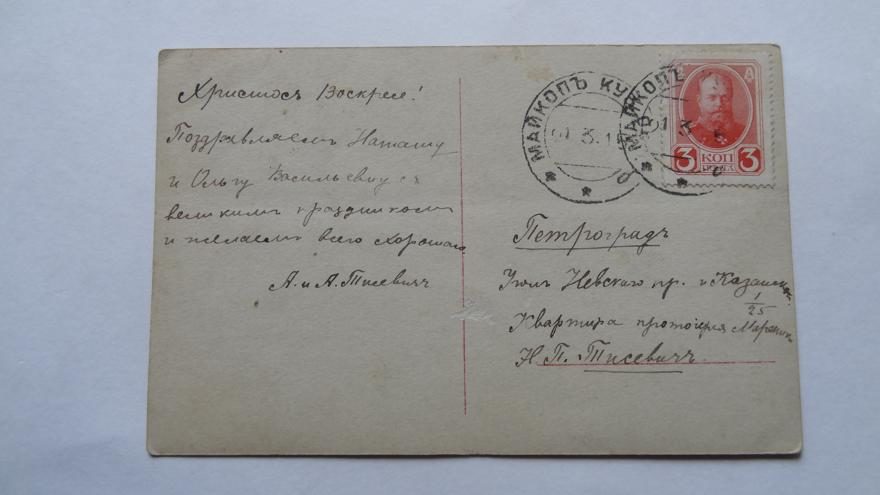 Христосъ Воскресе!
Поздравляемъ Наташу
и Ольгу Васильевну съ
великимъ праздникомъ
и желаемъ всего хорошаго
А. и А. Тисевичъ
МАЙКОПЪ КУ
МАЙКОПЪ
3 КОП 3
Петроградъ
Уголъ Невскаго пр. и Казанской
1/25
Квартира протоіерея
Н. П. Тисевичъ.